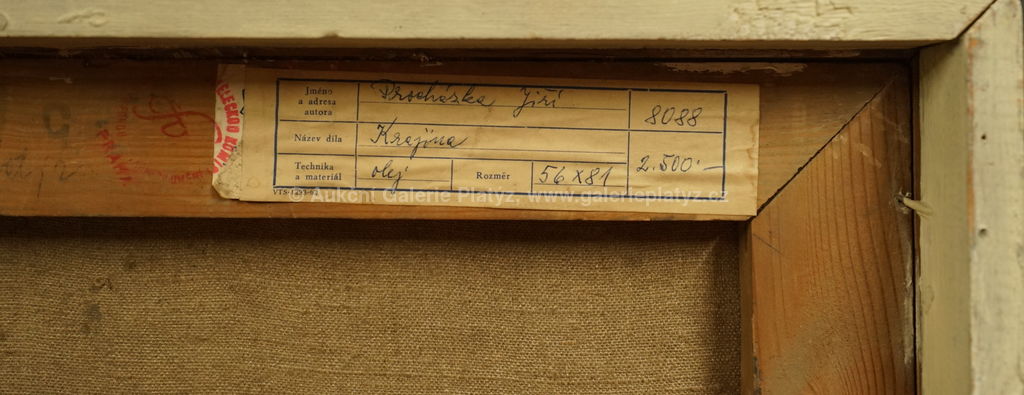 Jméno
a adresa
autora
Procházka Jiří
8088
Název díla
Krajina
Technika
a materiál
olej
Rozměr
56 x 81
2.500·–
© Aukční Galerie Platýz, www.galerieplatyz.cz
PRAHA